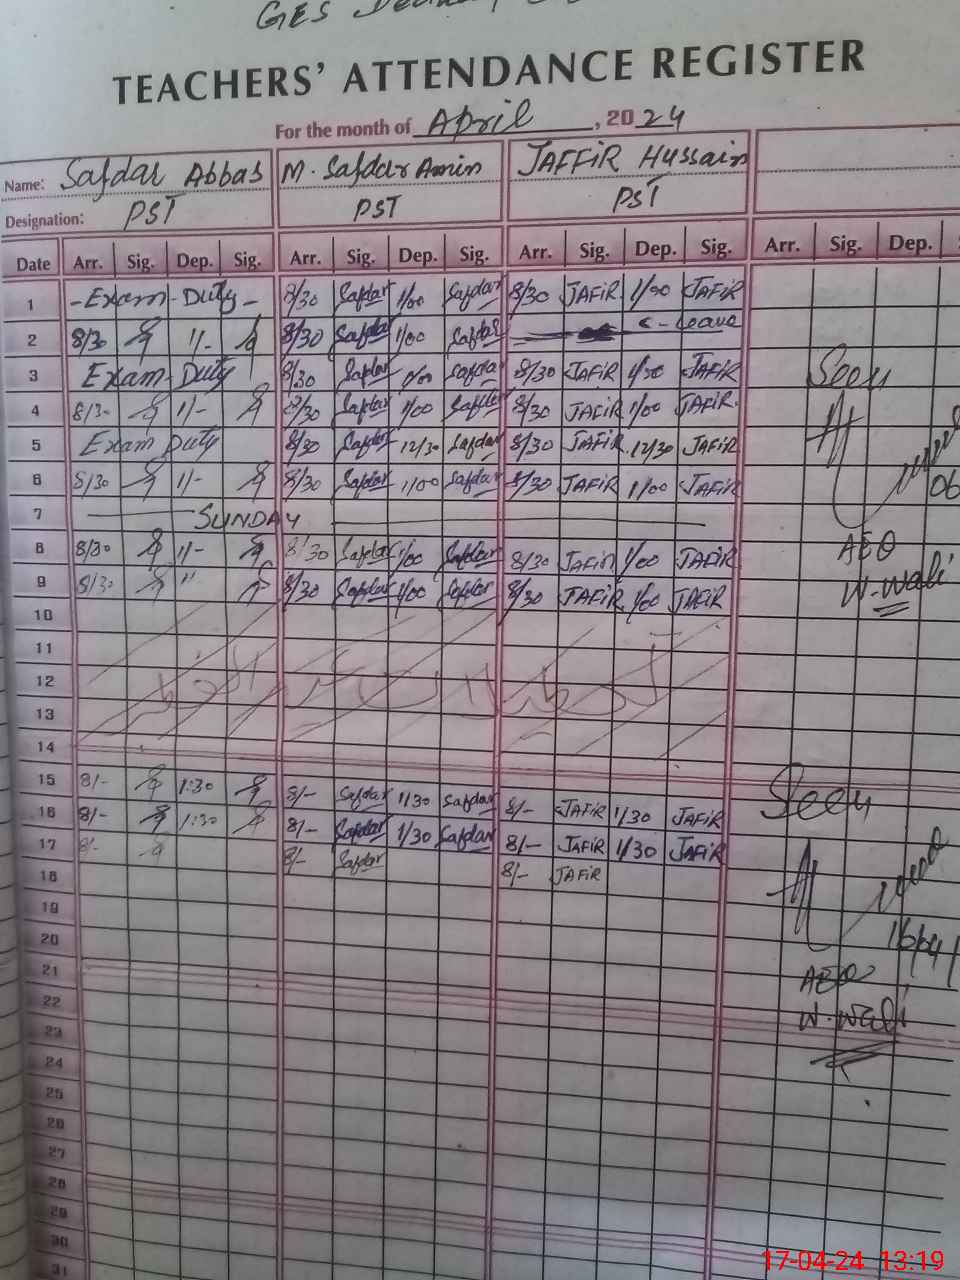 GES
TEACHERS' ATTENDANCE REGISTER
For the month of April, 2024
Name: Safdar Abbas M. Safdar Amin JAFFiR Hussain
Designation: PST PST PST
Date Arr. Sig. Dep. Sig. Arr. Sig. Dep. Sig. Arr. Sig. Dep. Sig. Arr. Sig. Dep.
1 -Exam-Duty- 8/30 Safdar 1/00 Safdar 8/30 JAFiR 1/00 JAFiR
2 8/30 1/- 8/30 Safdar 1/00 Safdar Leave
3 Exam-Duty 8/30 Safdar 1/00 Safdar 8/30 JAFiR 1/00 JAFiR Seen
4 8/30 1/- 8/30 Safdar 1/00 Safdar 8/30 JAFiR 1/00 JAFiR
5 Exam Duty 8/30 Safdar 12/30 Safdar 8/30 JAFiR 12/30 JAFiR
6 8/30 1/- 8/30 Safdar 1/00 Safdar 8/30 JAFiR 1/00 JAFiR 06
7 SUNDAY
8 8/30 1/- 8/30 Safdar 1/00 Safdar 8/30 JAFiR 1/00 JAFiR AEO
9 8/30 " 8/30 Safdar 1/00 Safdar 8/30 JAFiR 1/00 JAFiR W-Wali
10
11
12
13
14
15 8/- 1:30 8/- Safdar 1/30 Safdar 8/- JAFiR 1/30 JAFiR Seen
16 8/- 1:30 8/- Safdar 1/30 Safdar 8/- JAFiR 1/30 JAFiR
17 8/- 8/- Safdar 8/- JAFiR
18
19
20
21 AEO
22 W-Wali
23
24
25
26
27
28
29
30
31
17-04-24 13:19